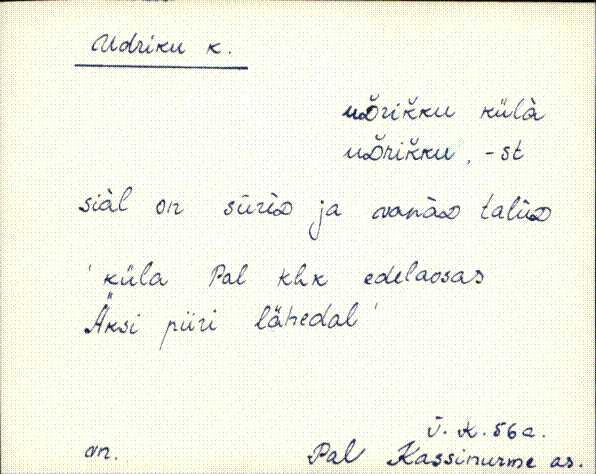 Udriku k.
uᴅ̆rik̆ku külà
uᴅ̆rik̆ku, -st
siàl on sūrìᴅ ja vanàᴅ talùᴅ
'küla Pal khk edelaosas
Äksi piiri lähedal'
V. K. 56 a.
vn. Pal Kassinurme as.